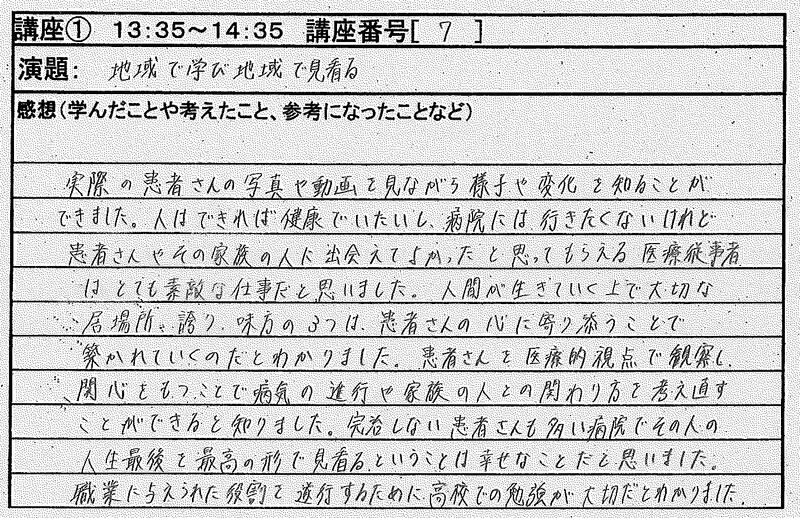 講座① 13:35～14:35 講座番号[ 7 ]
演題： 地域で学び地域で見看る
感想（学んだことや考えたこと、参考になったことなど）
実際の患者さんの写真や動画を見ながら様子や変化を知ることが
できました。人はできれば健康でいたいし、病院には行きたくないけれど
患者さんやその家族の人に出会えてよかったと思ってもらえる医療従事者
はとても素敵な仕事だと思いました。人間が生きていく上で大切な
居場所、誇り、味方の3つは、患者さんの心に寄り添うことで
築かれていくのだとわかりました。患者さんを医療的視点で観察し、
関心をもつことで病気の進行や家族の人との関わり方を考え直す
ことができると知りました。完治しない患者さんも多い病院でその人の
人生最後を最高の形で見看る、ということは幸せなことだと思いました。
職業に与えられた役割を遂行するために、高校での勉強が大切だとわかりました。